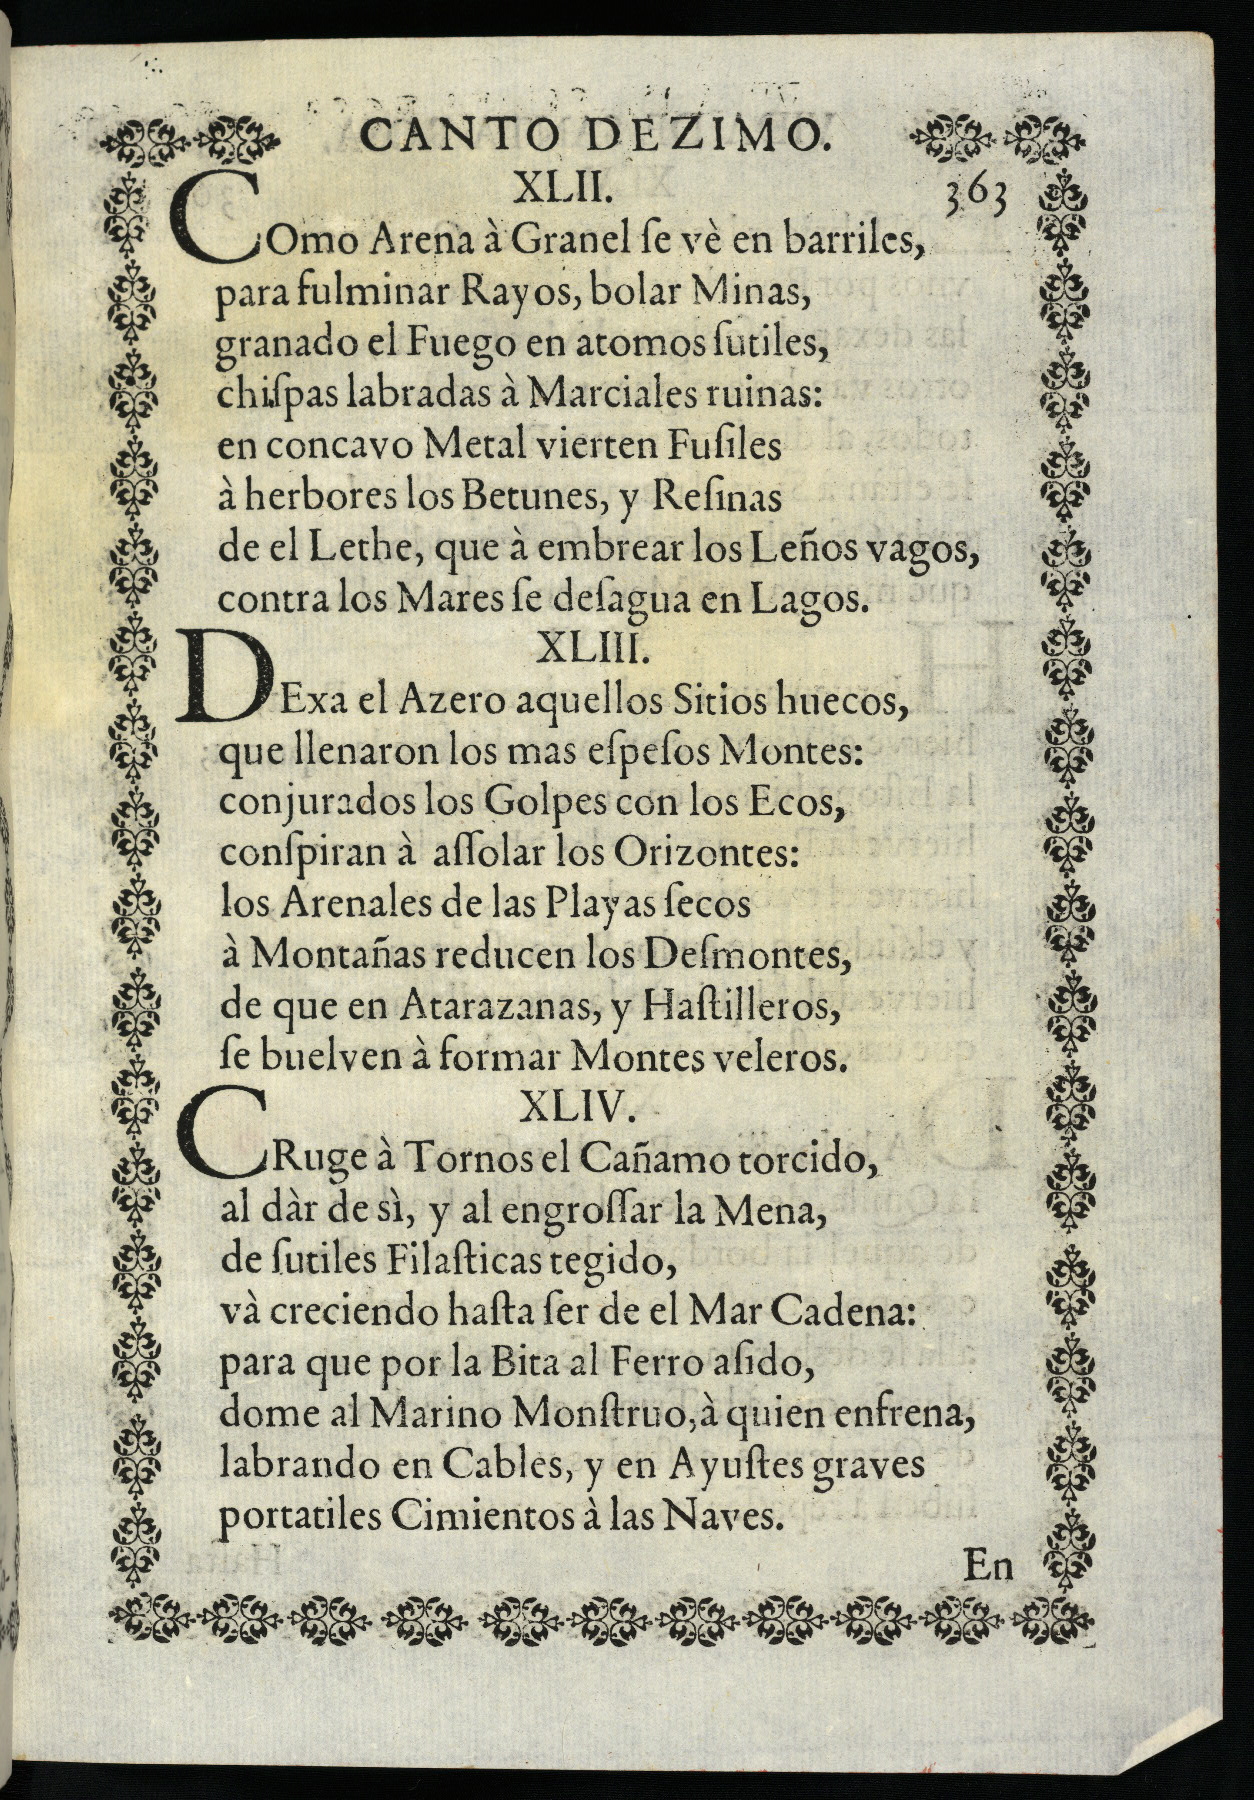 CANTO DEZIMO.
XLII.
363
COmo Arena à Granel ſe vè en barriles,
para fulminar Rayos, bolar Minas,
granado el Fuego en atomos ſutiles,
chiſpas labradas à Marciales ruinas:
en concavo Metal vierten Fuſiles
à herbores los Betunes, y Reſinas
de el Lethe, que à embrear los Leños vagos,
contra los Mares ſe deſagua en Lagos.
XLIII.
DExa el Azero aquellos Sitios huecos,
que llenaron los mas eſpeſos Montes:
conjurados los Golpes con los Ecos,
conſpiran à aſſolar los Orizontes:
los Arenales de las Playas ſecos
à Montañas reducen los Deſmontes,
de que en Atarazanas, y Haſtilleros,
ſe buelven à formar Montes veleros.
XLIV.
CRuge à Tornos el Cañamo torcido,
al dàr de sì, y al engroſſar la Mena,
de ſutiles Filaſticas tegido,
và creciendo haſta ſer de el Mar Cadena:
para que por la Bita al Ferro aſido,
dome al Marino Monſtruo, à quien enfrena,
labrando en Cables, y en Ayuſtes graves
portatiles Cimientos à las Naves.
En